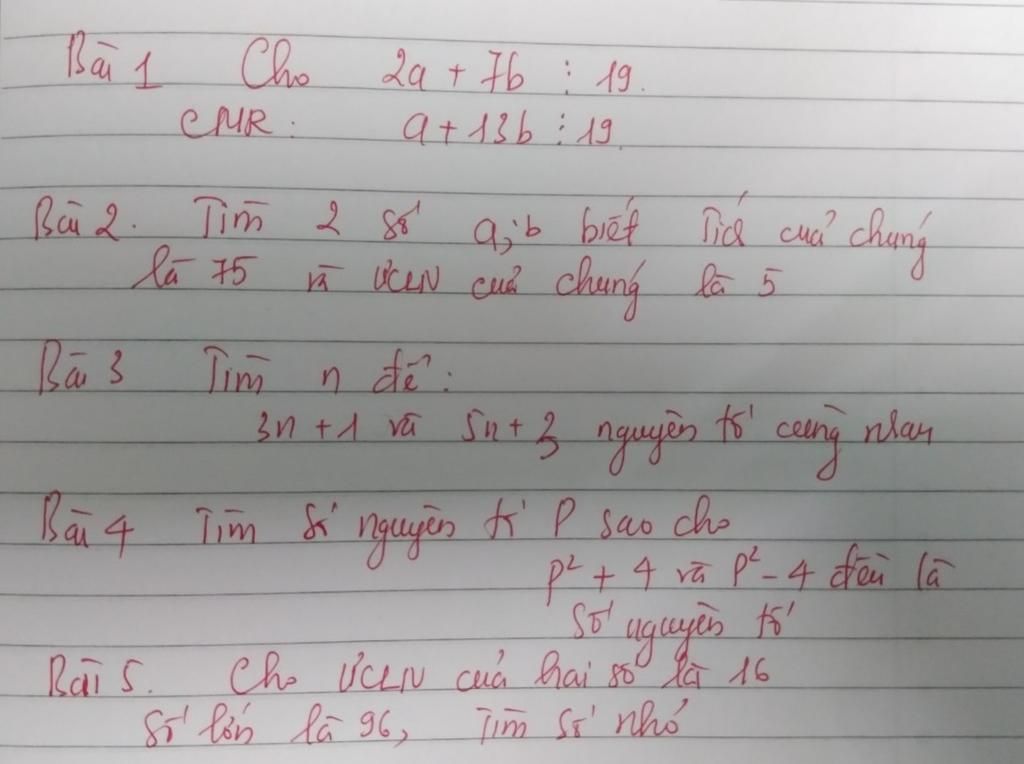 Bài 1 Cho 2a + 7b ⋮ 19.
CMR: a + 13b ⋮ 19.
Bài 2. Tìm 2 số a;b biết Tích của chúng
là 75 và ƯCLN của chúng là 5
Bài 3 Tìm n để:
3n + 1 và 5n + 3 nguyên tố cùng nhau
Bài 4 Tìm số nguyên tố P sao cho
P² + 4 và P² - 4 đều là
số nguyên tố
Bài 5. Cho ƯCLN của hai số là 16
số lớn là 96, Tìm số nhỏ